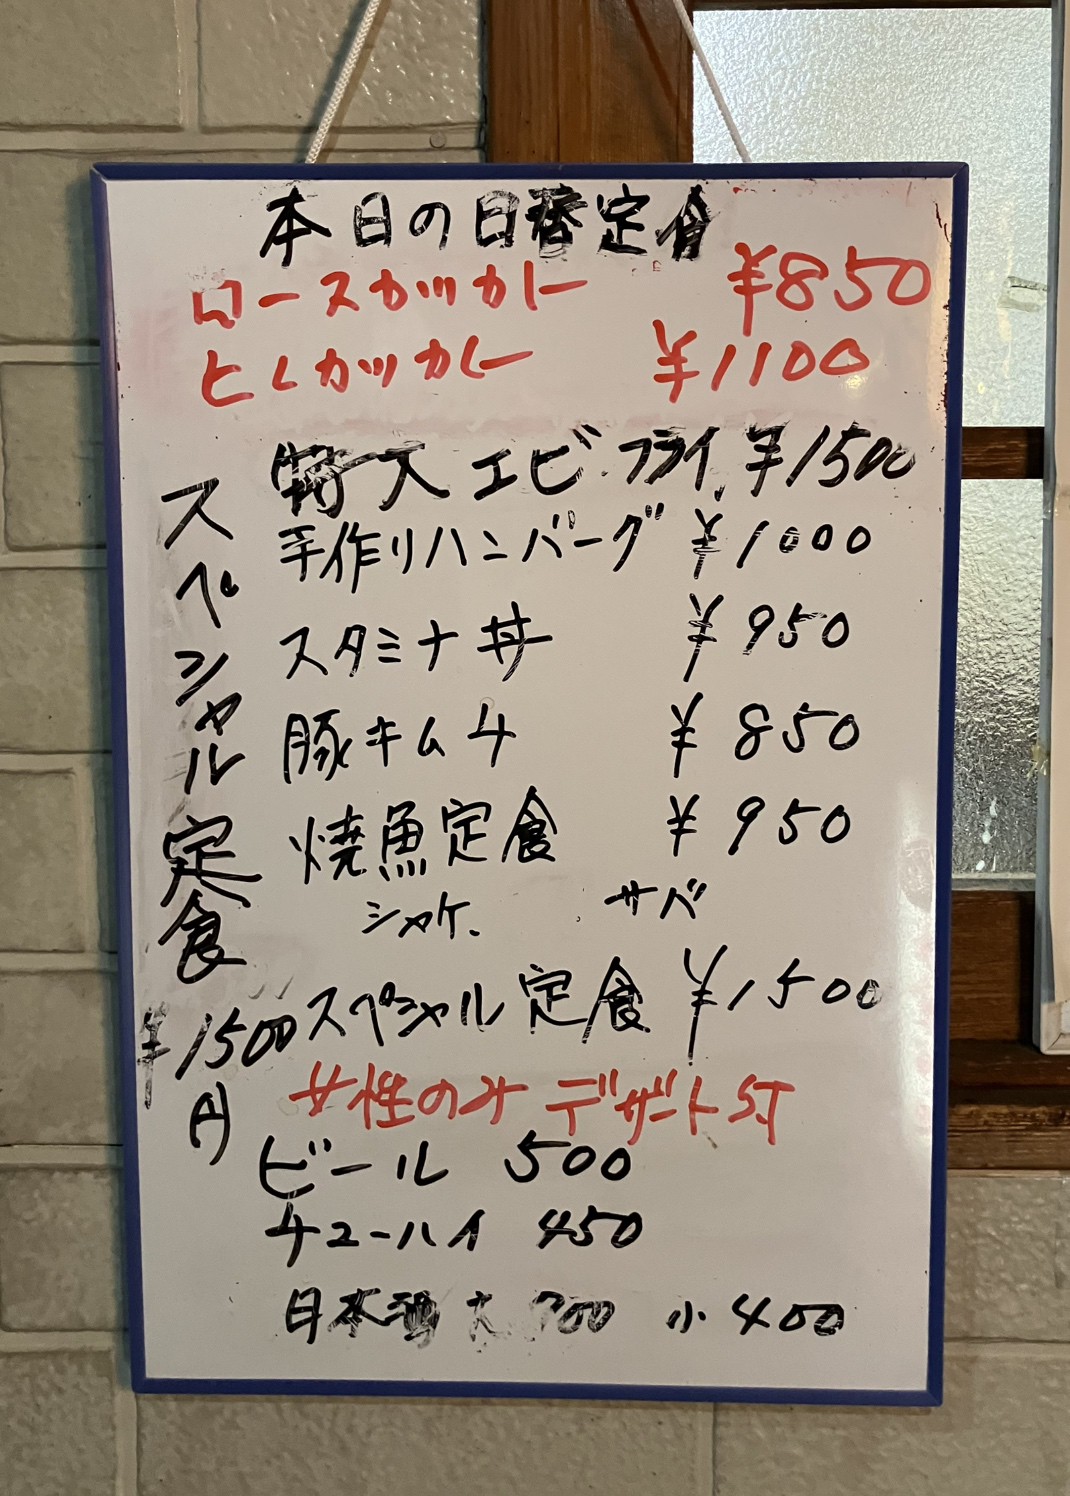 本日の日替定食
ロースカツカレー ¥850
ヒレカツカレー ¥1100
特大エビフライ ¥1500
手作りハンバーグ ¥1000
スタミナ丼 ¥950
豚キムチ ¥850
焼魚定食 ¥950
シャケ、サバ
スペシャル定食 ¥1500
女性のみデザート付
ビール 500
チューハイ 450
日本酒 大 700 小 400
スペシャル定食
¥1500円